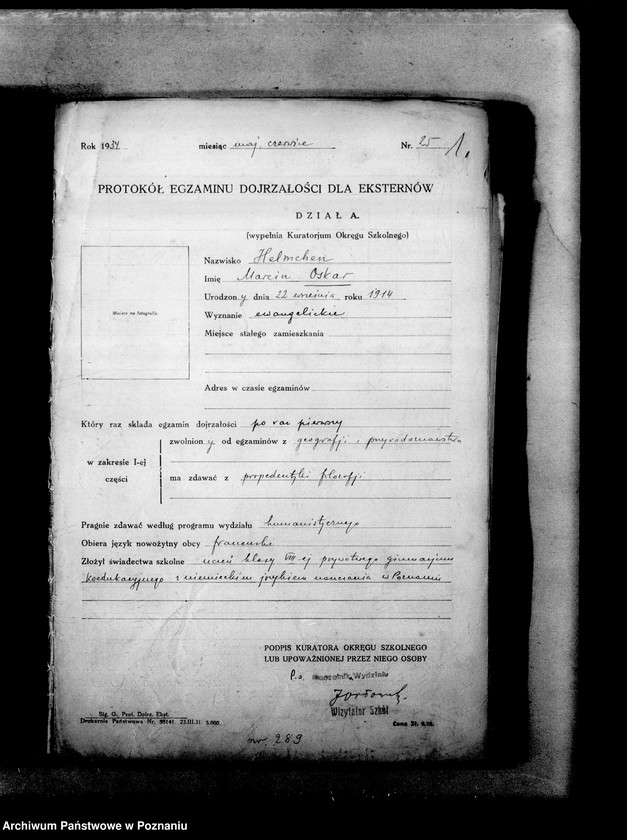 Rok 1934 miesiąc maj, czerwiec Nr. 25
PROTOKÓŁ EGZAMINU DOJRZAŁOŚCI DLA EKSTERNÓW
DZIAŁ A.
(wypełnia Kuratorjum Okręgu Szkolnego)
Nazwisko Helmchen
Imię Marcin Oskar
Urodzony dnia 22 września roku 1914
Wyznanie ewangelickie
Miejsce na fotografję
Miejsce stałego zamieszkania
Adres w czasie egzaminów
Który raz składa egzamin dojrzałości po raz pierwszy
zwolniony od egzaminów z geografji i przyrodoznawstwa
w zakresie I-ej
części
ma zdawać z propedeutyki filozofji
Pragnie zdawać według programu wydziału humanistycznego
Obiera język nowożytny obcy francuski
Złożył świadectwa szkolne uczeń klasy VIII-ej prywatnego gimnazjum
koedukacyjnego z niemieckim językiem nauczania w Poznaniu
PODPIS KURATORA OKRĘGU SZKOLNEGO
LUB UPOWAŻNIONEJ PRZEZ NIEGO OSOBY
Naczelnik Wydziału
Wizytator Szkół
Sig. G. Prot. Dojrz. Ekst.
Drukarnia Państwowa Nr. 55141. 23.III.31 5.000.
Cena Zł.
nr. 289
Archiwum Państwowe w Poznaniu